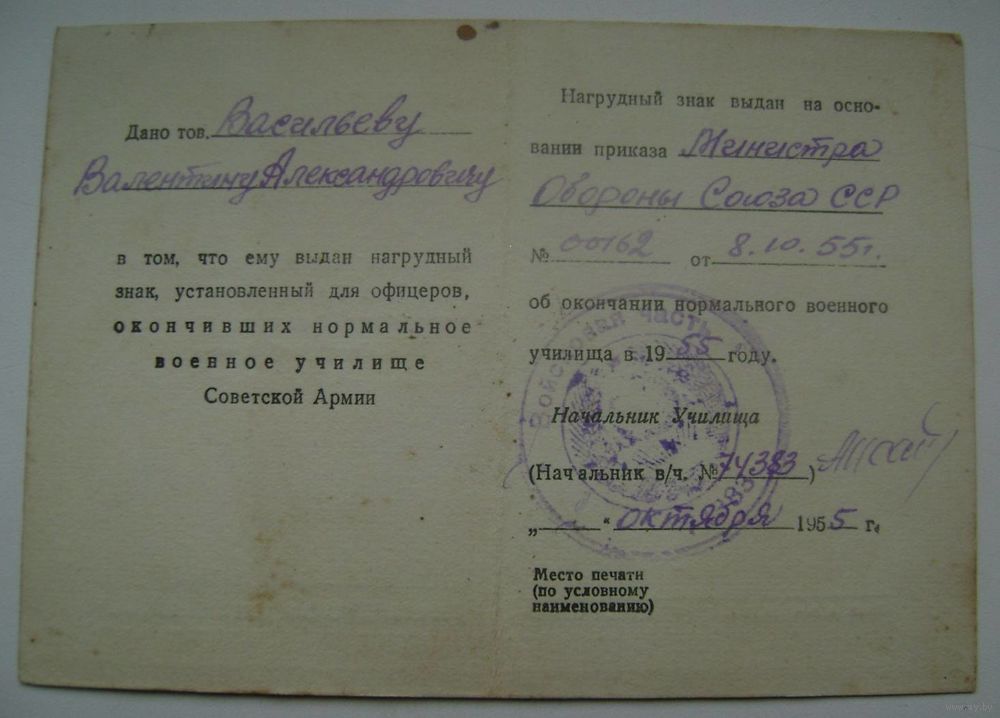 Дано тов. Васильеву
Валентину Александровичу
в том, что ему выдан нагрудный
знак, установленный для офицеров,
окончивших нормальное
военное училище
Советской Армии
Нагрудный знак выдан на осно-
вании приказа Министра
Обороны Союза ССР
№ 00162 от 8.10.55г.
об окончании нормального военного
училища в 1955 году.
Войсковая часть
Начальник Училища
(Начальник в/ч. № 74383)
„ “ октября 1955 г.
Место печати
(по условному
наименованию)